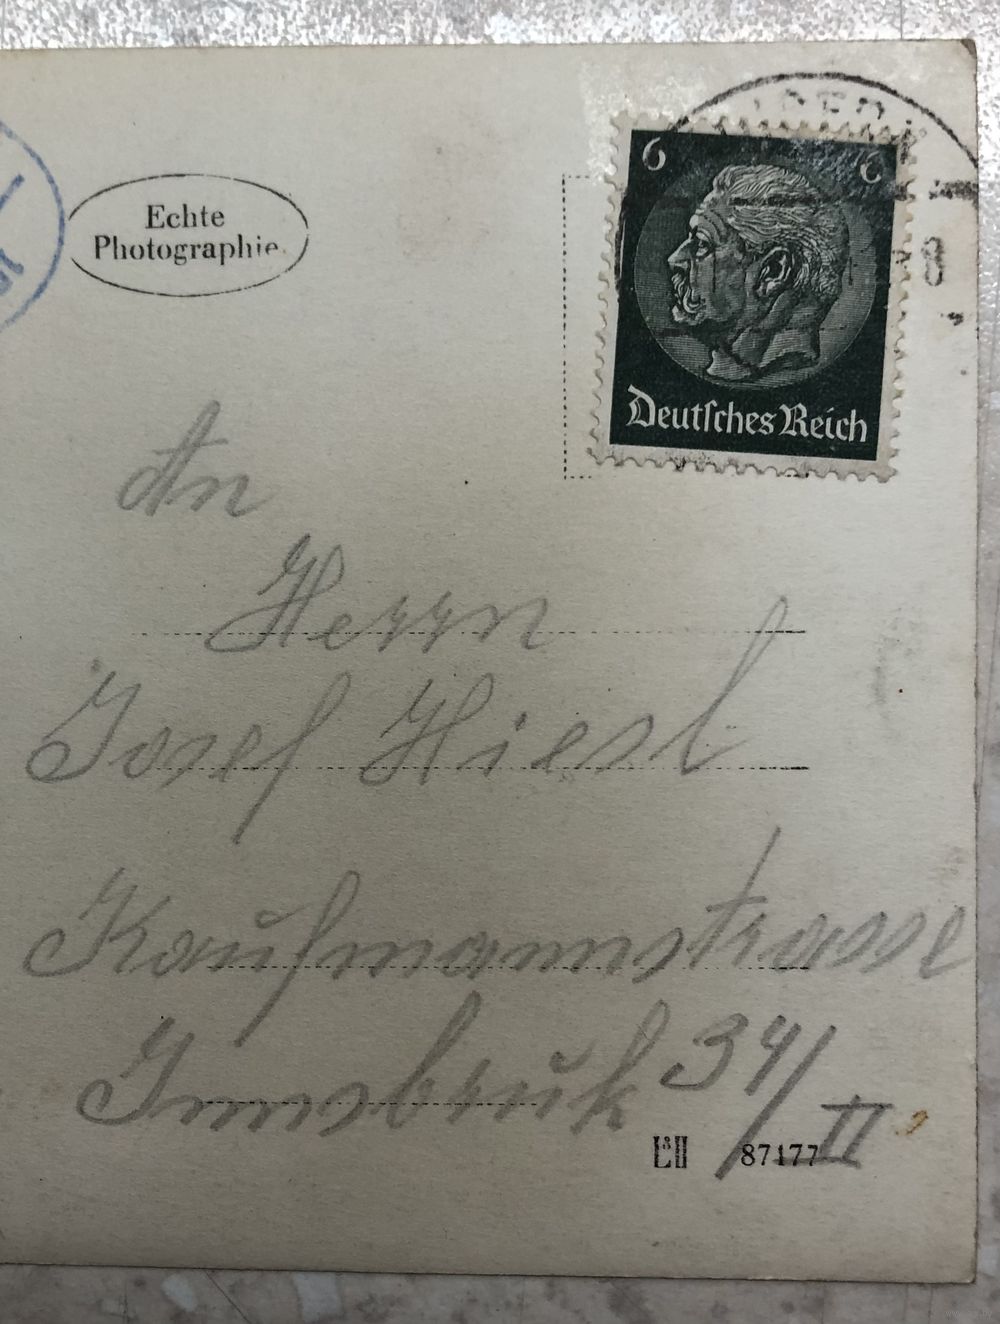 Echte
Photographie
6 6
Deutsches Reich
8
An
Herrn
Josef Hiesl
Kaufmannstrasse
Innsbruk 34/II
87177